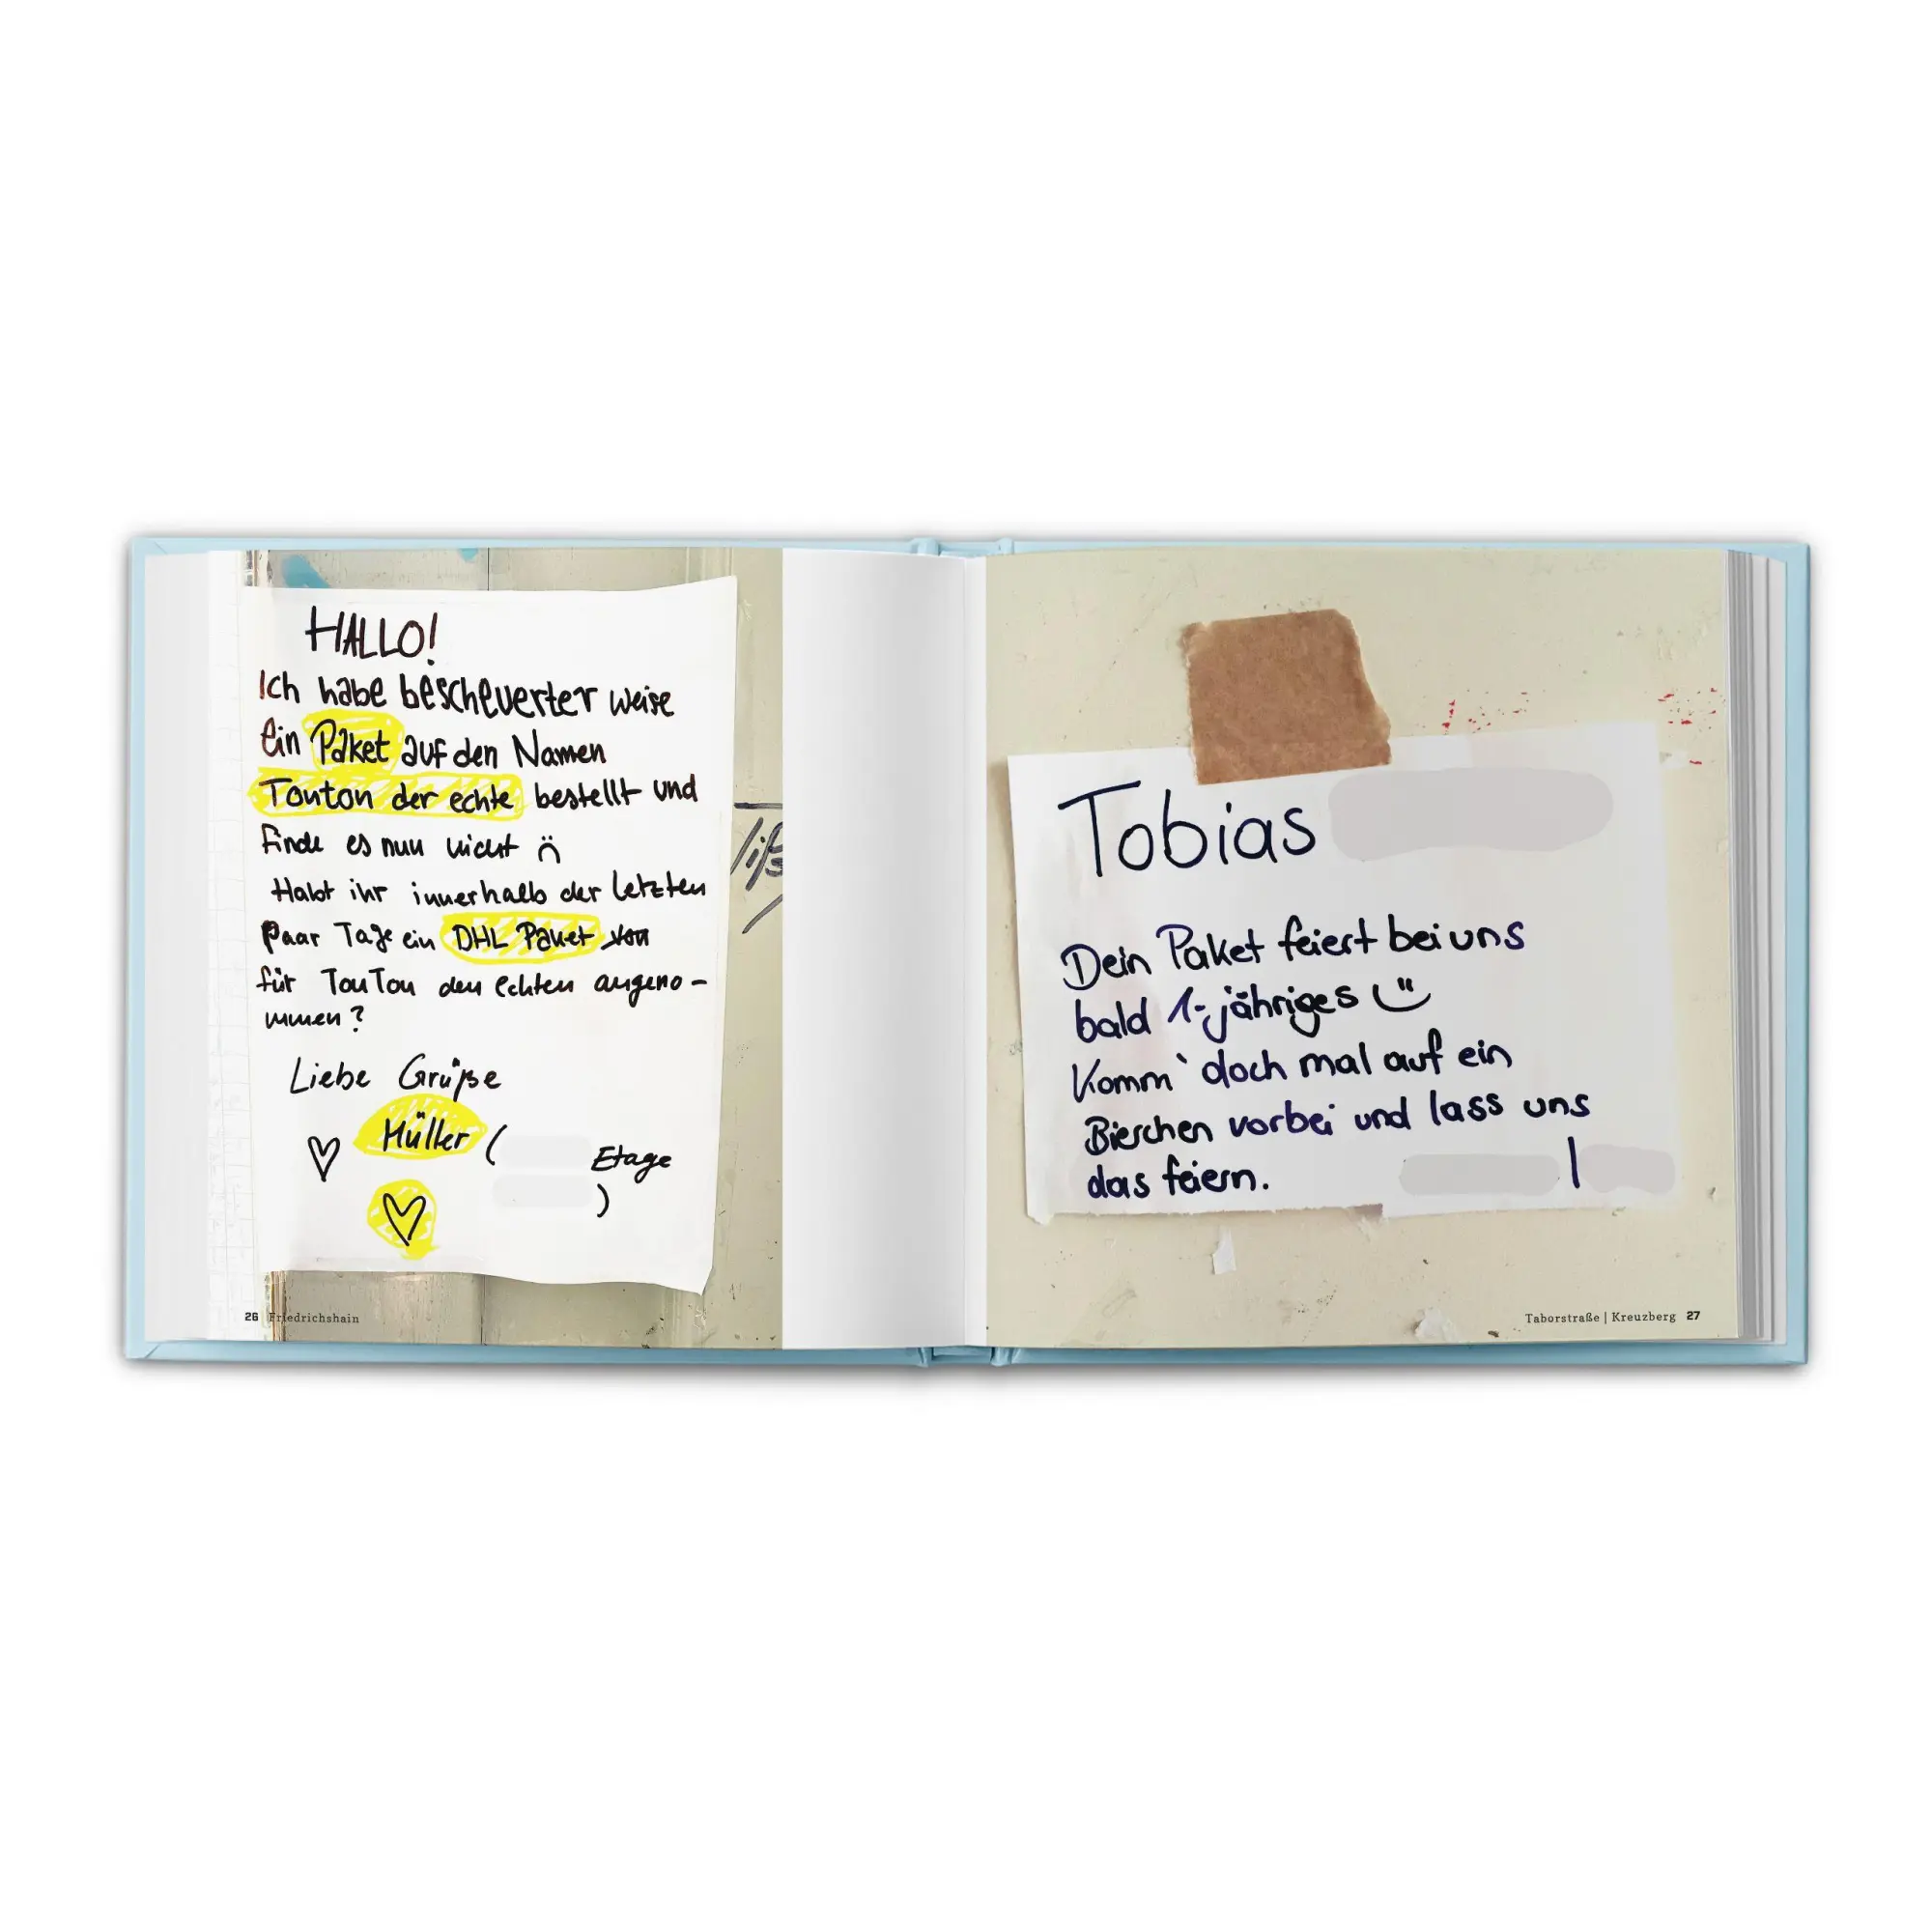 HALLO!
Ich habe bescheuerter weise
ein Paket auf den Namen
Tonton der echte bestellt und
finde es nun nicht
Habt ihr innerhalb der letzten
paar Tage ein DHL Paket von
für TonTon den echten angeno-
mmen?
Liebe Grüße
Müller (
Etage
)
26 | Friedrichshain
Tobias
Dein Paket feiert bei uns
bald 1-jähriges
Komm` doch mal auf ein
Bierchen vorbei und lass uns
das feiern. |
Taborstraße | Kreuzberg 27